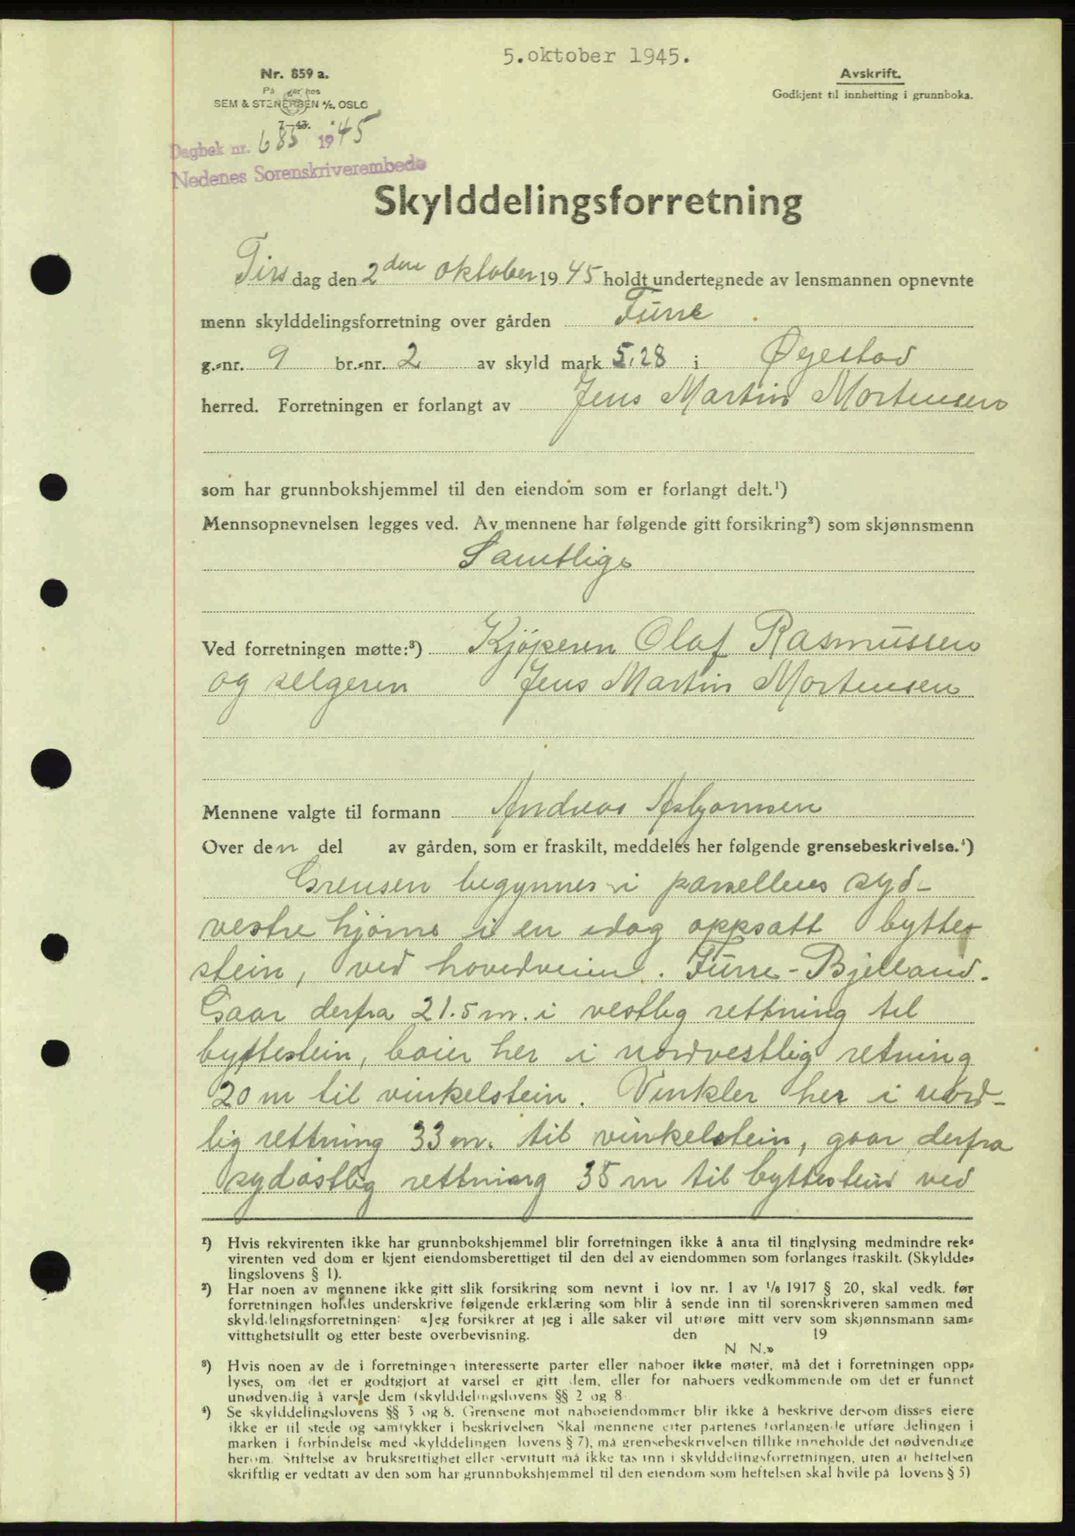 5.oktober 1945.
Nr. 859 a.
Avskrift.
SEM & STENERSEN A/S. OSLO
Godkjent til innhetting i grunnboka.
7-43.
Dagbok nr. 683 1945
Nedenes Sorenskriverembede
Skylddelingsforretning
Tirsdag den 2den oktober 1945 holdt undertegnede av lensmannen opnevnte
menn skylddelingsforretning over gården Furre
g.-nr. 9 br.-nr. 2 av skyld mark 5,28 i Øyestad
herred. Forretningen er forlangt av Jens Martin Mortensen
som har grunnbokshjemmel til den eiendom som er forlangt delt.¹)
Mennsopnevnelsen legges ved. Av mennene har følgende gitt forsikring²) som skjønnsmenn
Samtlige
Ved forretningen møtte:³) Kjøperen Olaf Rasmussen
og selgeren Jens Martin Mortensen
Mennene valgte til formann Andreas Asbjørnsen
Over den del av gården, som er fraskilt, meddeles her følgende grensebeskrivelse.⁴)
Grensen begynnes i parsellens syd-
vestre hjørne i en idag oppsatt bytte-
stein, ved hovedveien. Furre - Bjelland.
Gaar derfra 21.5 m. i vestlig rettning til
byttestein, bøier her i nordvestlig retning
20 m til vinkelstein. Vinkler her i nord-
lig rettning 33 m. til vinkelstein, gaar derfra
sydøstlig rettning 35 m til byttestein ved
¹) Hvis rekvirenten ikke har grunnbokshjemmel blir forretningen ikke å anta til tinglysing medmindre rek-
virenten ved dom er kjent eiendomsberettiget til den del av eiendommen som forlanges fraskilt. (Skyldde-
lingslovens § 1).
²) Har noen av mennene ikke gitt slik forsikring som nevnt i lov nr. 1 av 1/6 1917 § 20, skal vedk. før
forretningen holdes underskrive følgende erklæring som blir å sende inn til sorenskriveren sammen med
skylddelingsforretningen: «Jeg forsikrer at jeg i alle saker vil utføre mitt verv som skjønnsmann sam-
vittighetsfullt og etter beste overbevisning. den 19
N N.»
³) Hvis noen av de i forretningen interesserte parter eller naboer ikke møter, må det i forretningen opp-
lyses, om det er godtgjort at varsel er gitt dem, eller for naboers vedkommende om det er funnet
unødvendig å varsle dem (skylddelingslovens §§ 2 og 8
⁴) Se skylddelingslovens §§ 3 og 8. Grensene mot naboeiendommer blir ikke å beskrive dersom disses eiere
ikke er til stede og samtykker i beskrivelsen Skal mennene etter partenes forlangende utføre delingen i
marken i forbindelse med skylddelingen lovens § 7), må grensebeskrivelsen tillike inneholde det nødvendige
herom. Stiftelse av bruksrettighet eller servitutt må ikke tas inn i skylddelingsforretningen, uten at heftelsen
skriftlig er vedtatt av den som har grunnbokshjemmel til den eiendom som heftelsen skal hvile på lovens § 5)